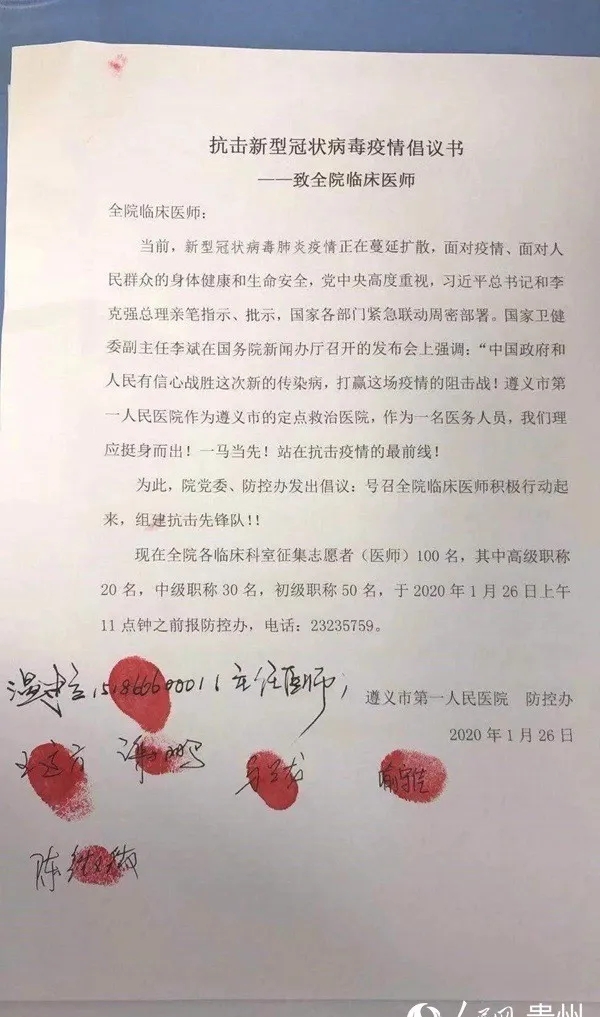 抗击新型冠状病毒疫情倡议书
——致全院临床医师
全院临床医师：
当前，新型冠状病毒肺炎疫情正在蔓延扩散，面对疫情、面对人
民群众的身体健康和生命安全，党中央高度重视，习近平总书记和李
克强总理亲笔指示、批示，国家各部门紧急联动周密部署。国家卫健
委副主任李斌在国务院新闻办厅召开的发布会上强调：“中国政府和
人民有信心战胜这次新的传染病，打赢这场疫情的阻击战！遵义市第
一人民医院作为遵义市的定点救治医院，作为一名医务人员，我们理
应挺身而出！一马当先！站在抗击疫情的最前线！
为此，院党委、防控办发出倡议：号召全院临床医师积极行动起
来，组建抗击先锋队！！
现在全院各临床科室征集志愿者（医师）100 名，其中高级职称
20 名，中级职称 30 名，初级职称 50 名，于 2020 年 1 月 26 日上午
11 点钟之前报防控办，电话：23235759。
主任医师
遵义市第一人民医院 防控办
2020 年 1 月 26 日
陈
人民网 贵州